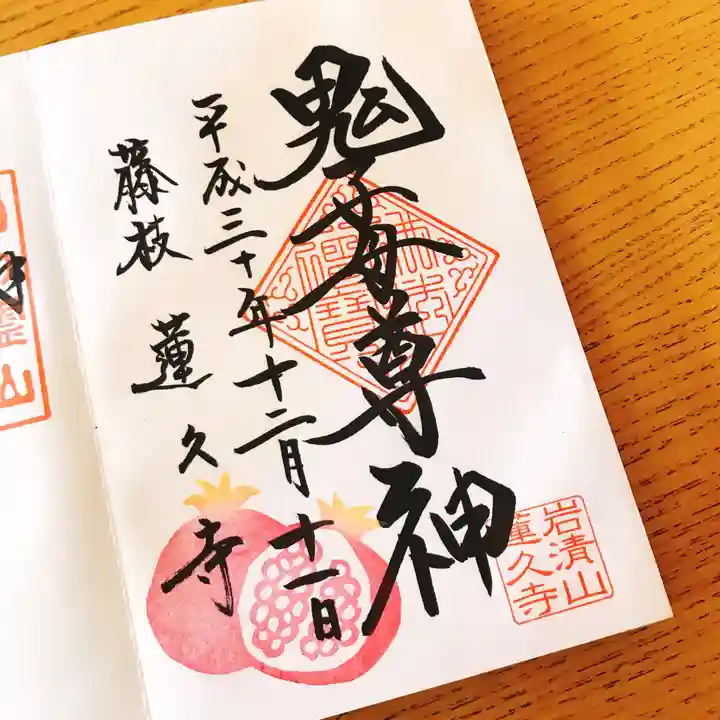 鬼子母尊神
平成三十年十二月十一日
藤枝 蓮久寺
岩清山
蓮久寺